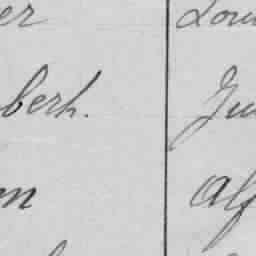 er Lou
berh. Ju
m Alf